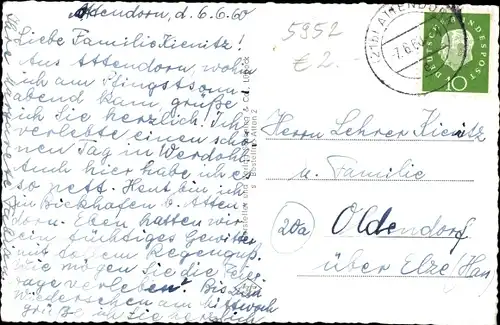 Attendorn, d. 6.6.60
Liebe Familie Kienitz!
Aus Attendorn, wohin
ich am Pfingstsonn-
abend kam, grüße
ich Sie herzlich. Ich
verlebte einen schö-
nen Tag in Werdohl.
Auch hier habe ich es
so nett. Heut bin ich
in Biekhofen b. Atten-
dorn. Eben hatten wir
ein tüchtiges Gewitter
mit Regenguß.
Wie mögen Sie die
tage verleben? Bis
Wiedersehen am Mittwoch
grüße ich Sie herzlich
5952
€ 2.-
ATTENDORN
-7.6.60
DEUTSCHE BUNDESPOST
10
Herrn Lehrer Kienitz
u. Familie
20a
Oldendorf
über Elze (Han)
& Co., Lübeck
Bestellnr. 2